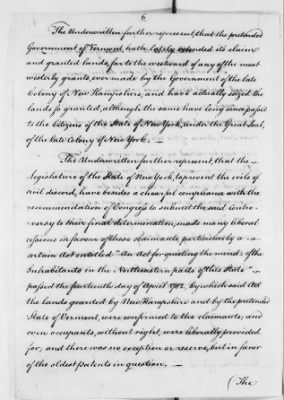 6
The Underwritten further represent, that the pretended
Government of Vermont hath lately extended its claim
and granted lands, far to the westward of any of the most
westerly grants, ever made by the Government of the late
Colony of New Hampshire, and have actually seized the
lands so granted, although the same have long since passed
to the Citizens of the State of New York, under the Great Seal,
of the late Colony of New York. —
The Underwritten further represent, that the
legislature of the State of New York, to prevent the evils of
civil discord, have besides a chearful compliance with the
recommendation of Congress to submit the said Contro-
versy to their final determination, made many liberal
cessions in favour of these claimants, particularly by a
certain Act entitled "An Act for quieting the minds of the
Inhabitants in the North eastern parts of this State"
passed the fourteenth day of April 1782, by which said Act
the lands granted by New Hampshire and by the pretended
State of Vermont, were confirmed to the claimants, and
even occupants, without right, were liberally provided
for, and there was no exception or reserve, but in favor
of the oldest patents in question. —
(The